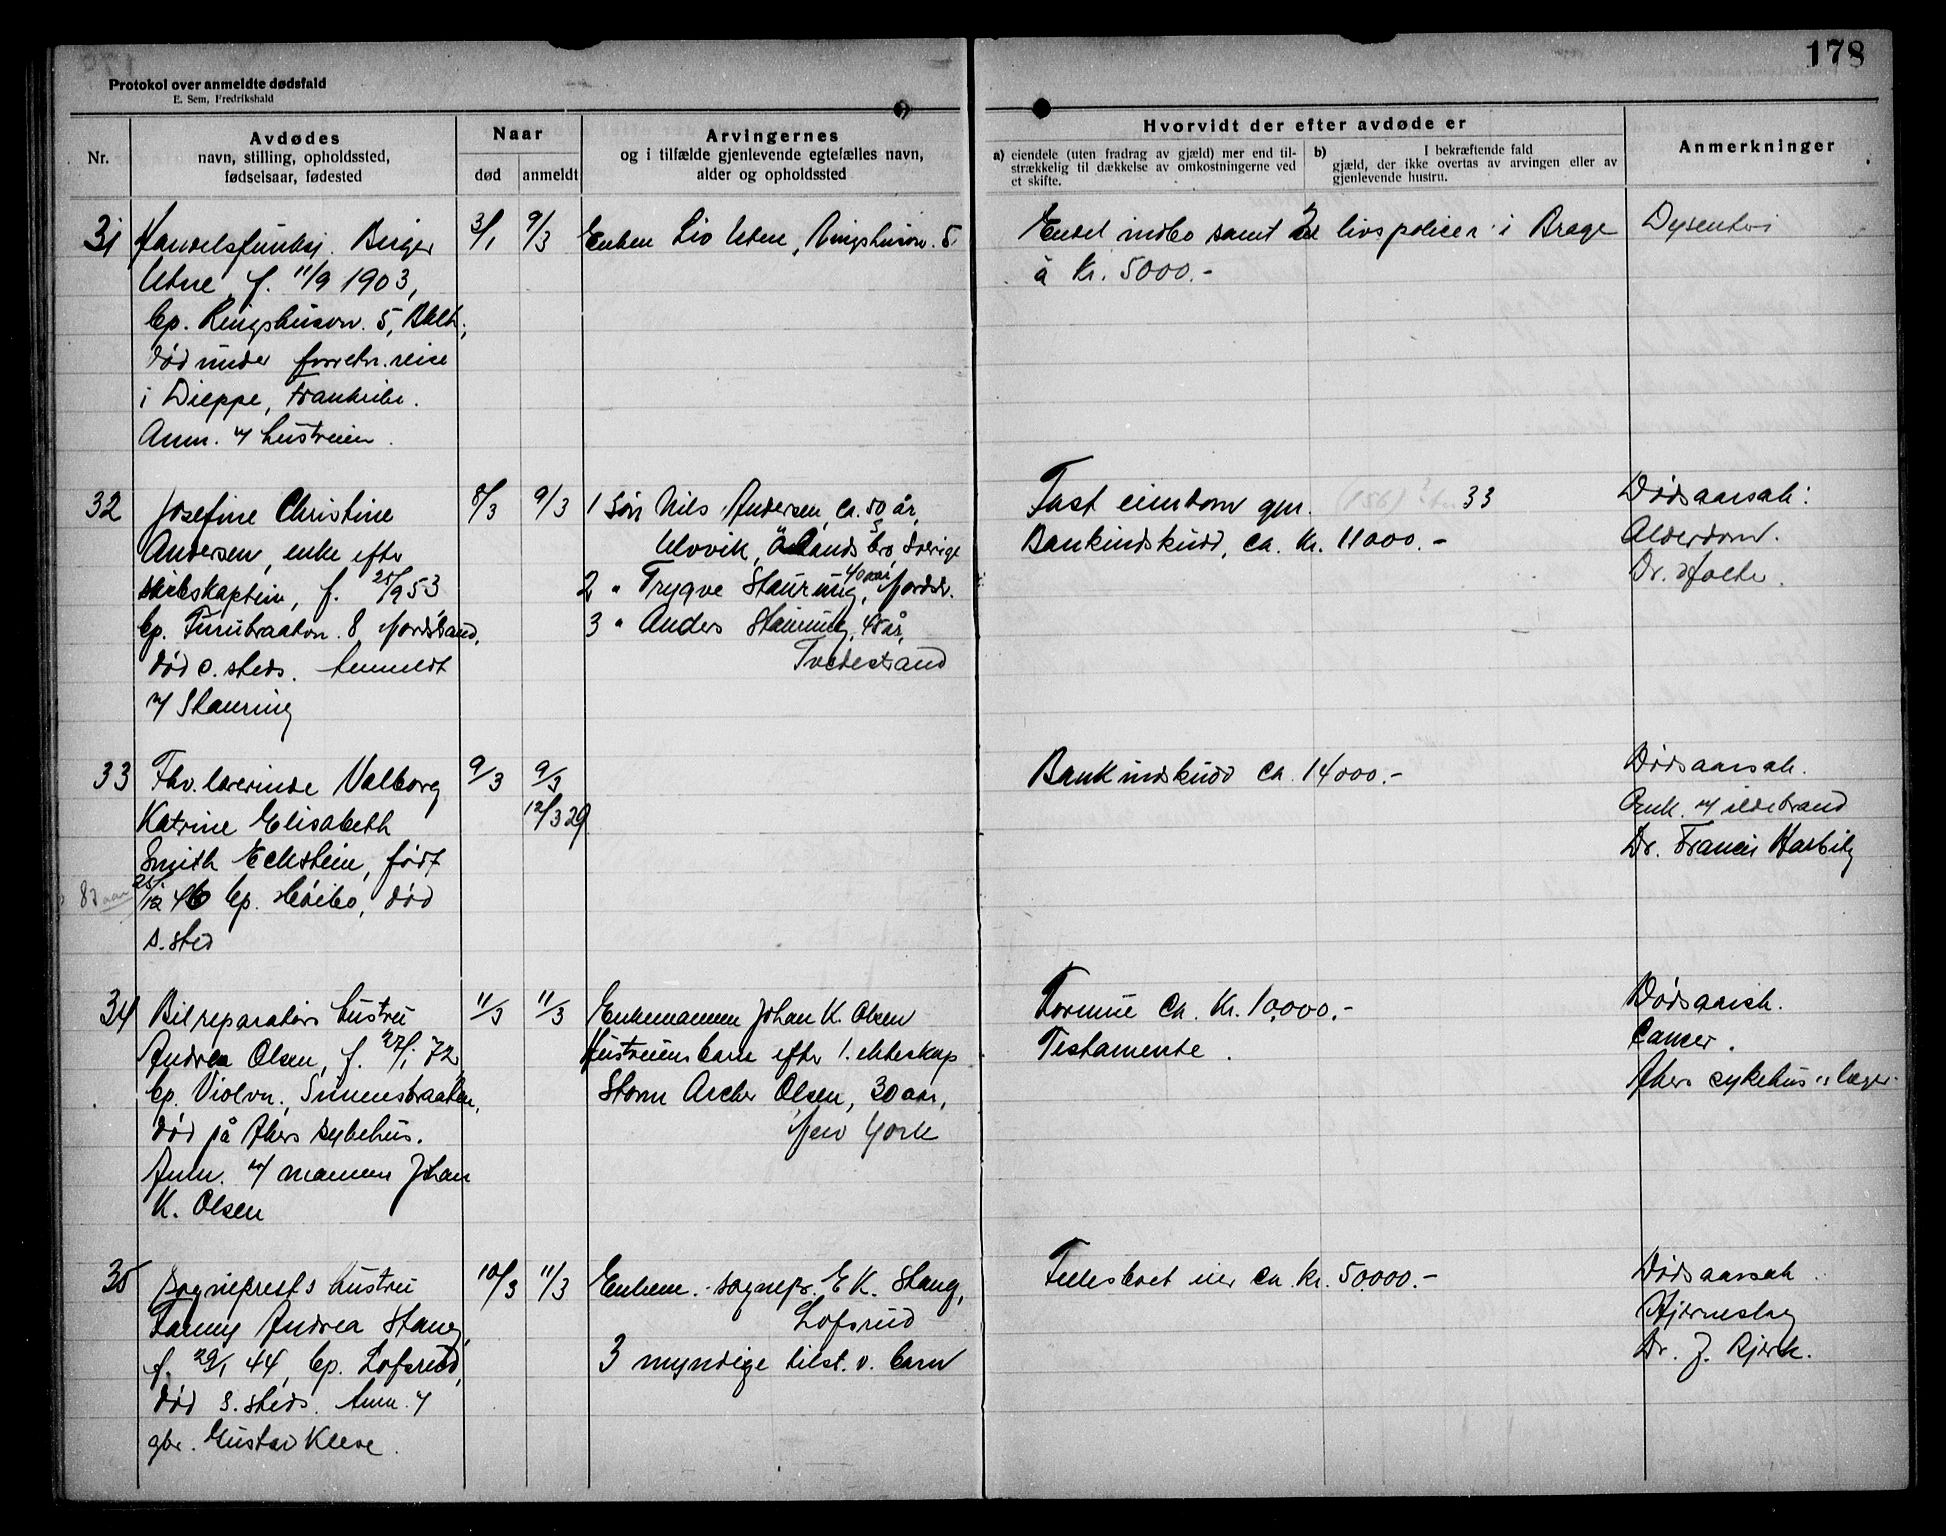 178
Protokol over anmeldte dødsfald
E. Sem, Fredrikshald
Nr.
Avdødes
navn, stilling, opholdssted,
fødselsaar, fødested
Naar
død
anmeldt
Arvingernes
og i tilfælde gjenlevende egtefælles navn,
alder og opholdssted
Hvorvidt der efter avdøde er
a) eiendele (uten fradrag av gjæld) mer end til-
strækkelig til dækkelse av omkostningerne ved
et skifte.
b) I bekræftende fald
gjæld, der ikke overtas av arvingen eller av
gjenlevende hustru.
Anmerkninger
31
Handelsfunksj. Birger
Utne, f. 11/9 1903,
bp. Ringshusvn. 5,
død under forretn.reise
i Dieppe, Frankrike.
Anm. af hustruen.
3/1
9/3
Enken Liv Utne, Ringshusvn. 5
Endel indbo samt 2 livspolicer i Brage
à Kr. 5000.-
Dysenteri
32
Josefine Christine
Andersen, enke efter
skibskaptein, f. 25/9 53
bp. Furubraatvn. 8 Nordstrand,
død s. steds. Anmeldt
af Stauring
8/3
9/3
1 Søn Nils Andersen, ca. 50 år,
Ulvvik, Sverige
2 " Trygve Stauring, 40 aar, Nordstr.
3 " Anders Stauring, 45 år,
Tvedestrand
Fast eiendom gnr. (156) 33
Bankindskudd, ca. Kr. 11000.-
Dødsaarsak:
Alderdom.
Dr. Holte.
33
83 aar
Fhv. lærerinde Valborg
Katrine Elisabeth
Smith Eckstein, født
25/12 46 bp. Høibo, død
s. sted
9/3
9/3
12/3 29
Bankindskudd ca. 14000.-
Dødsaarsak.
Ank. af ildebrand
Dr. Francis Harbitz
34
Bilreparatørs hustru
Andrea Olsen, f. 27/1 72,
bp. Violvn., Simensbraaten,
død på Akers sykehus.
Anm. af mannen Johan
K. Olsen
11/3
11/3
Enkemannen Johan K. Olsen
Hustruens barn efter 1. ekteskap
Storm Archer Olsen, 30 aar,
New York
Formue ca. Kr. 10,000.-
Testamente.
Dødsaarsak.
Cancer.
Akers sykehus's læger.
35
Sogneprests hustru
Fanny Andrea Stang,
f. 29/1 44, bp. Lofsrud,
død s. steds. Anm. af
gbr. Gustav Kleve.
10/3
11/3
Enkem. sognepr. E K. Stang,
Lofsrud
3 myndige tilst. v. barn
Fellesboet eier ca. kr. 50.000.-
Dødsaarsak.
Hjerneslag
Dr. J. Bjerk.